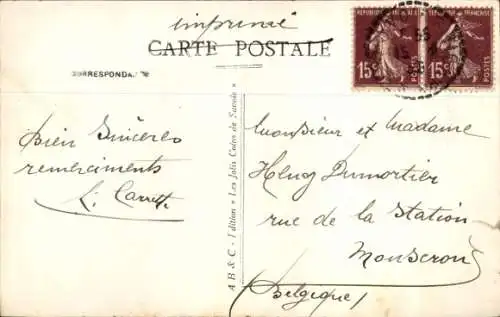 imprimé
CARTE POSTALE
CORRESPONDANCE
REPUBLIQUE FRANÇAISE
15c POSTES
15c POSTES
bien Sincères
remerciments
L. Carrette
A B & C - Edition "Les Jolis Coins de Savoie"
Monsieur et Madame
Henry Dumortier
rue de la Station
Mouscron
(Belgique)